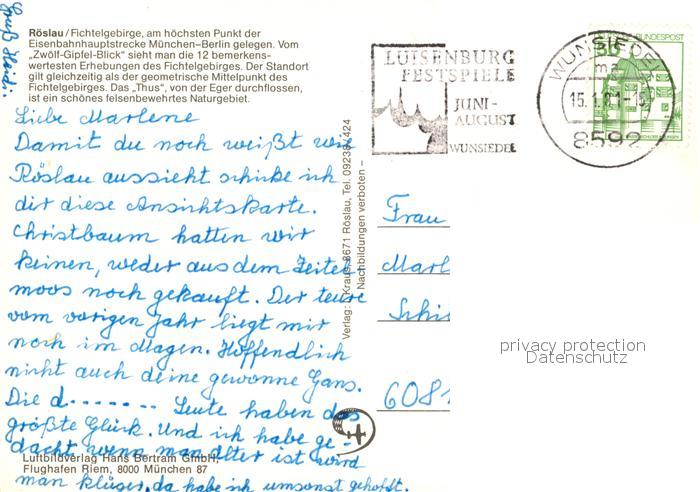 Gruß Heidi.
Röslau / Fichtelgebirge, am höchsten Punkt der
Eisenbahnhauptstrecke München–Berlin gelegen. Vom
„Zwölf-Gipfel-Blick“ sieht man die 12 bemerkens-
wertesten Erhebungen des Fichtelgebirges. Der Standort
gilt gleichzeitig als der geometrische Mittelpunkt des
Fichtelgebirges. Das „Thus“, von der Eger durchflossen,
ist ein schönes felsenbewehrtes Naturgebiet.
Liebe Marlene
Damit du noch weißt wie
Röslau aussieht schicke ich
dir diese Ansichtskarte.
Christbaum hatten wir
keinen, weder aus dem Zeitel
moos noch gekauft. Der teure
vom vorigen Jahr liegt mir
noch im Magen. Hoffendlich
nicht auch deine gewonne Gans.
Die d........ Leute haben das
größte Glück. Und ich habe ge-
dacht wenn man älter ist wird
man klüger, da habe ich umsonst gehofft.
Luftbildverlag Hans Bertram GmbH.
Flughafen Riem, 8000 München 87
Verlag: Kraus, 8671 Röslau, Tel. 09238/424
– Nachbildungen verboten –
LUISENBURG
FESTSPIELE
JUNI-
AUGUST
WUNSIEDEL
WUNSIEDEL
ma
15.1.81-15
8592
50
BUNDESPOST
Frau
Marl
Schi
6081
privacy protection
Datenschutz